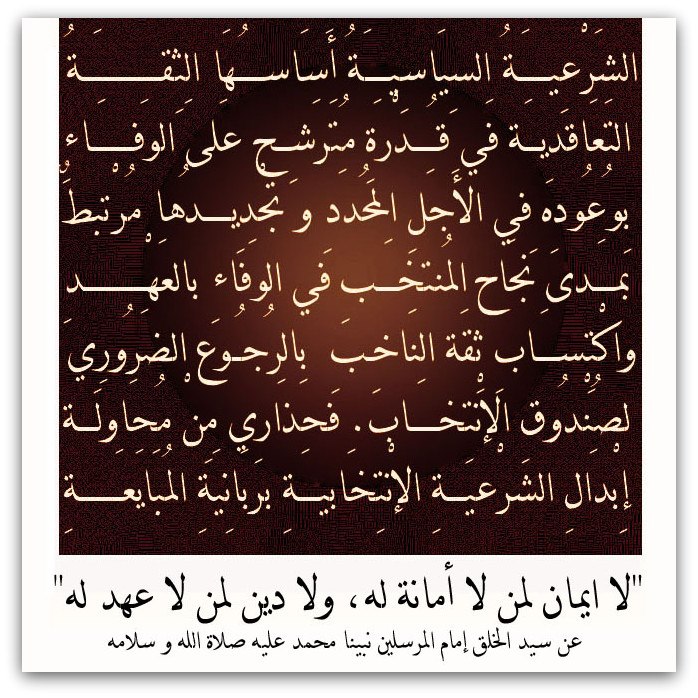 الشَرْعيـــةُ السيَاسيِـــةُ أَسَاسـهَا الثقـــــة
التعَاقديِـة في قـدرَة مُتَرشـح عَلىَ الَوفـــاء
بوُعُودهَ في الأَجَلِ المُحَدد وَ تجَديِـدهَا مُرْتبطٌ
بَمـدىَ نَجاحِ المُنتخَـب في الوفَاء بالعهْـــــد
واكْتِسـاب ثقة الناخبَ بِالرجُـوعَ الضَروُريَ
لصُنْدوُق الإْنتخَـاب. فَحذاريِ من مُحَاولـة
إبدال الشَرعيَـة الإنتخَابيـة برَبانيةَ المُبَايعـــة
"لا ايمان لمن لا أمانة له، ولا دين لمن لا عهد له"
عن سيد الخلق إمام المرسلين نبينا محمد عليه صلاة الله و سلامه